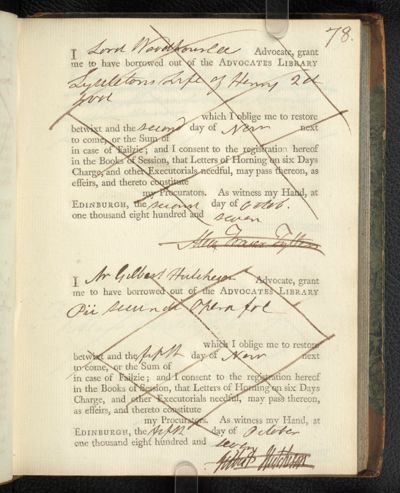 78.
I Lord Woodhouselee Advocate, grant
me to have borrowed out of the ADVOCATES LIBRARY
Lyttletons Life of Henry 2d
4 vol
which I oblige me to restore
betwixt and the second day of Novr next
to come, or the Sum of
in case of Failzie; and I consent to the registration hereof
in the Books of Session, that Letters of Horning on six Days
Charge, and other Executorials needful, may pass thereon, as
effeirs, and thereto constitute
my Procurators. As witness my Hand, at
EDINBURGH, the second day of Octob.
one thousand eight hundred and seven
Alexr Fraser Tytler
I Mr Gilbert Hutcheson Advocate, grant
me to have borrowed out of the ADVOCATES LIBRARY
Pii secundi Opera fol
which I oblige me to restore
betwixt and the fifth day of Novr next
to come, or the Sum of
in case of Failzie; and I consent to the registration hereof
in the Books of Session, that Letters of Horning on six Days
Charge, and other Executorials needful, may pass thereon,
as effeirs, and thereto constitute
my Procurators. As witness my Hand, at
EDINBURGH, the fifth day of October
one thousand eight hundred and seven
Gilbert Hutcheson